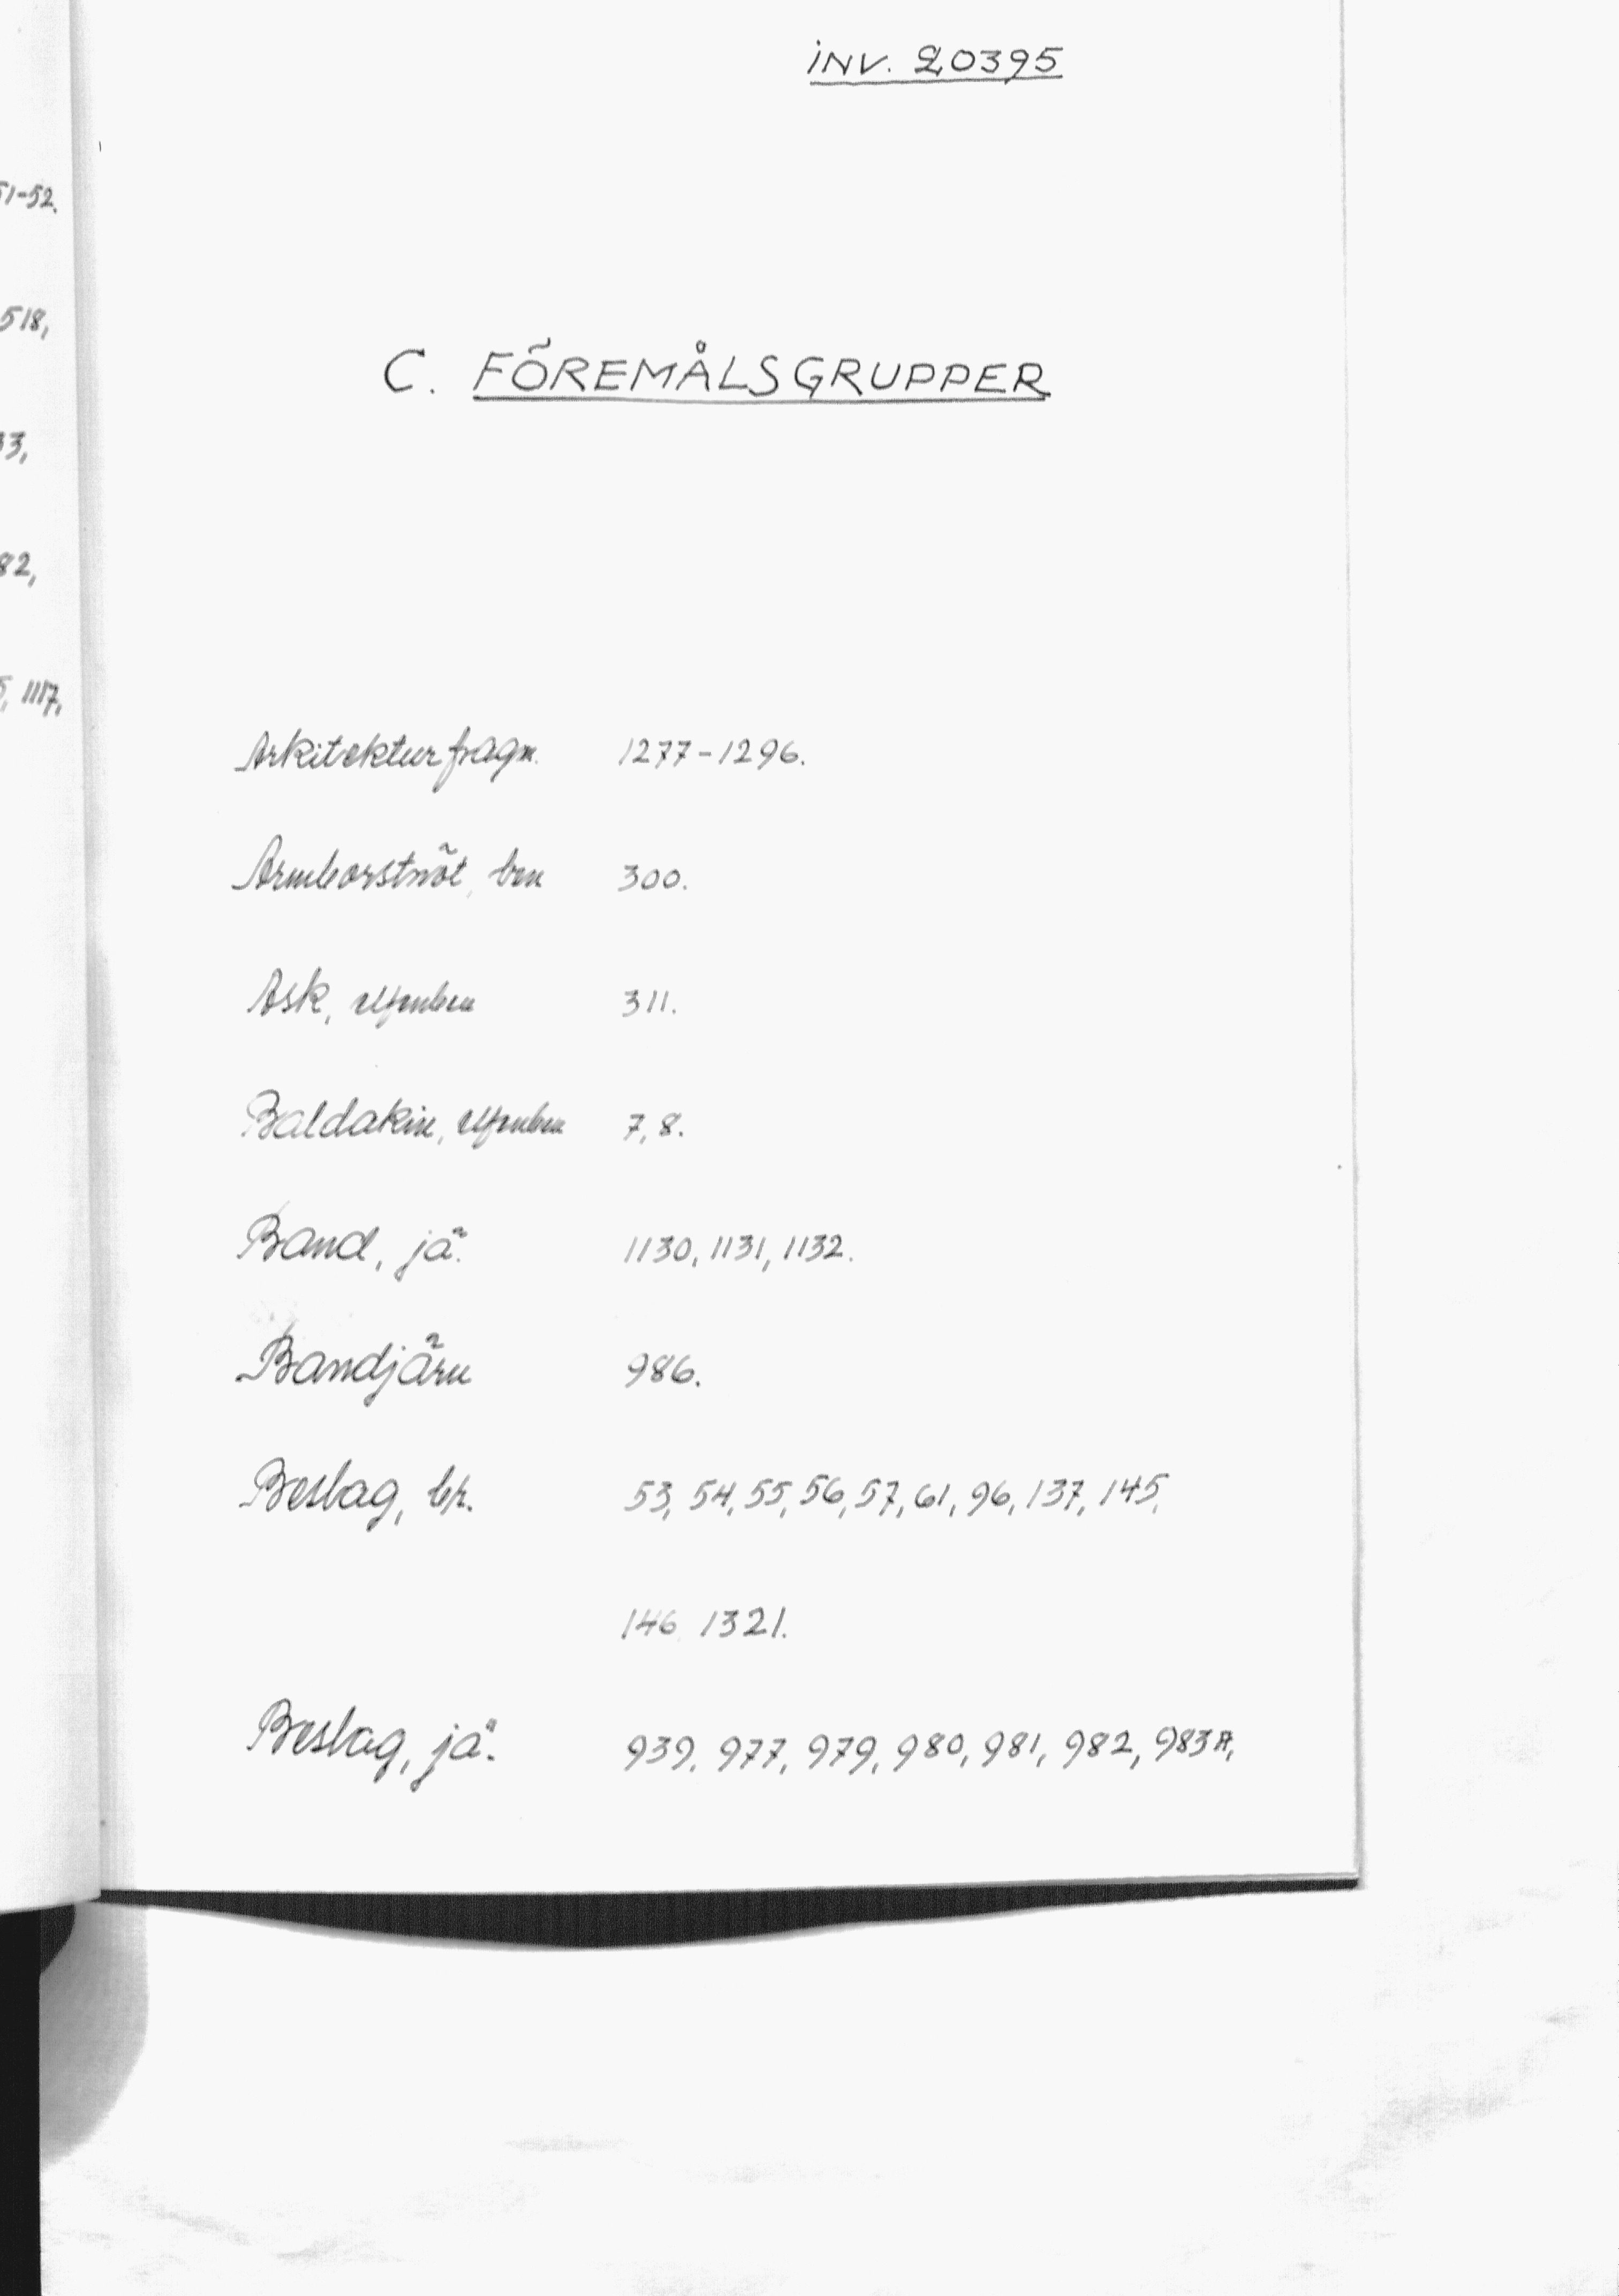 51-52.
518,
33,
82,
5, 1117,
INV. 20395
C. FÖREMÅLSGRUPPER
Arkitekturfragm. 1277-1296.
Armborstnöt, ben 300.
Ask, elfenben 311.
Baldakin, elfenben 7, 8.
Band, jä. 1130, 1131, 1132.
Bandjärn 986.
Beslag, br. 53, 54, 55, 56, 57, 61, 96, 137, 145,
146, 1321.
Beslag, jä. 939, 977, 979, 980, 981, 982, 983A,